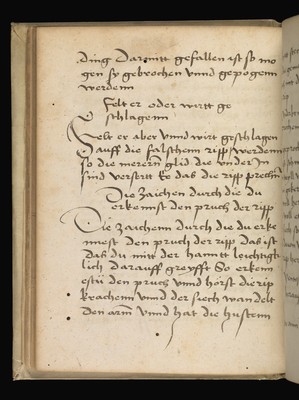 ding Darmitt gefallen ist so mo
gen sy gebrochen vnnd gepogenn
werdenn
Felt er oder wirtt ge
schlagenn
Felt er aber vnnd wirt geschlagen
auff die falschenn ripp werdenn
so die merern glid die vnder In
sind versertt Ee das die ripp prechn
Die zaichen durch die du
erkennst den pruch der ripp
Die zaichenn durch die du erke
nnest den pruch der ripp das ist
das du mitt der hanntt leichtigk
lich darauff greyfft So erkenn
estu den pruch vnnd hörst die rip
krachenn vnnd der siech wandelt
den arm vnnd hat die husten